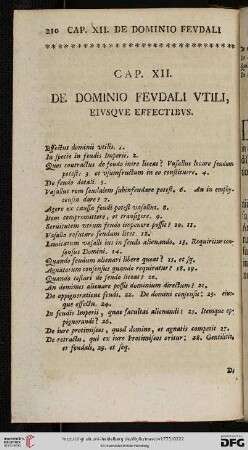 210 CAP. XII. DE DOMINIO FEVDALI
CAP. XII.
DE DOMINIO FEVDALI VTILI,
EIVSQVE EFFECTIBVS.
Effectus dominii utilis. 1.
In specie in feudis Imperii. 2.
Qui contractus de feudo iniri liceat? Vasallus locare feudum
potest: 3 et usumfructum in eo constituere. 4.
De feudo dotali. 5.
Vasallus rem feudalem subinfeudare potest. 6. An in emphy-
teusin dare? 7.
Agere ex caussa feudi potest vasallus. 8.
Item compromittere, et transigere. 9.
Servitutem utrum feudo imponere possit? 10. 11.
Vasallo refutare feudum licet. 12.
Limitatum vasalli ius in feudo alienando. 13. Requiritur con-
sensus Domini. 14.
Quando feudum alienari libere queat? 15. et sq.
Agnatorum consensus quando requiratur? 18. 19.
Quando testari de feudo liceat? 20.
An dominus alienare possit dominium directum? 21.
De oppignoratione feudi. 22. De domini consensu: 23. eius-
que effectu. 24.
In feudis Imperii, quae facultas alienandi? 25. Itemque op-
pignorandi? 26.
De iure protimiseos, quod domino, et agnatis competit 27.
De retractu, qui ex iure protimiseos oritur: 28. Gentilitio,
et feudali. 29. et seq.